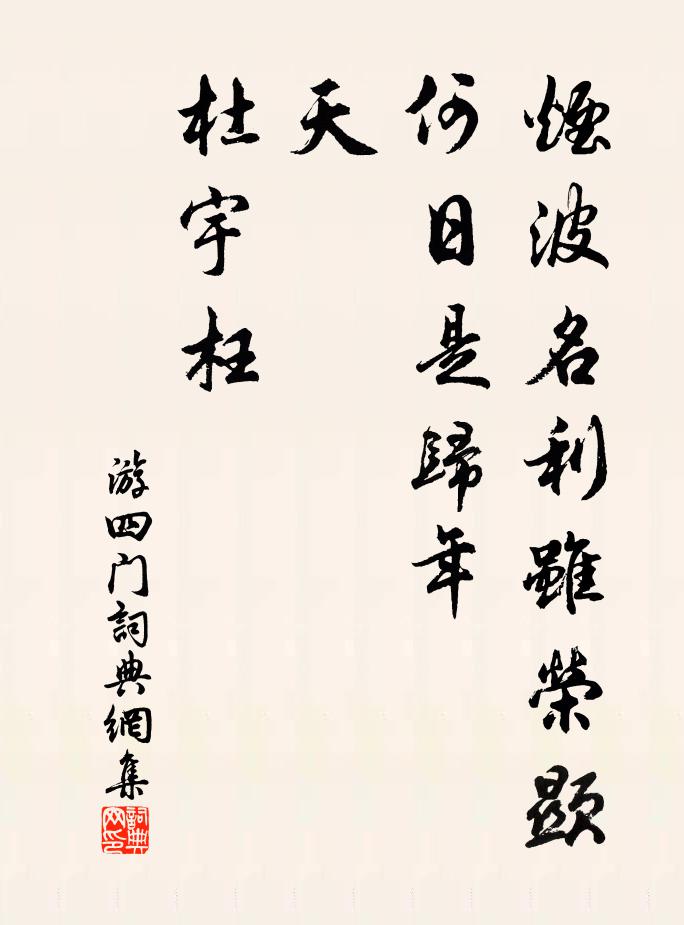 煙波名利雖榮顯
何日是歸年
天
杜宇枉
游四门詞典網集
詞典
网印